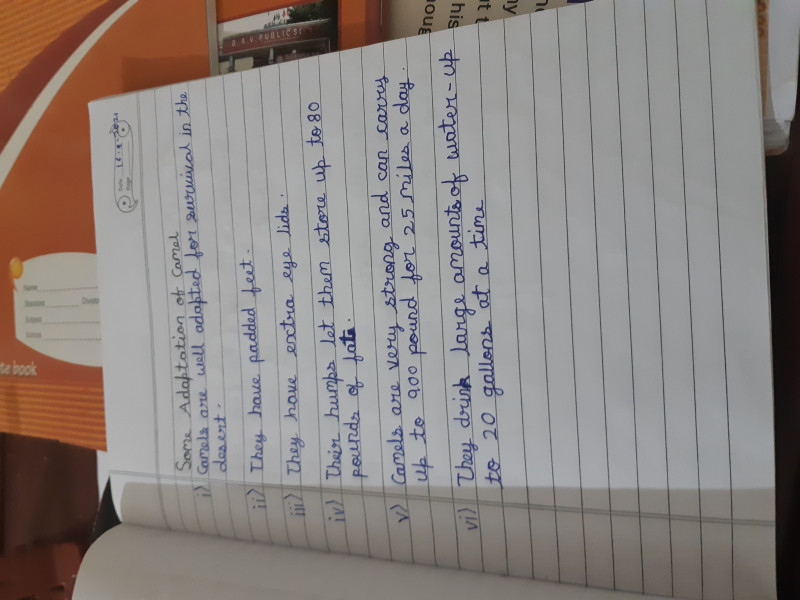 Date
Page
Some Adaptation of Camel
i) Camels are well adapted for survival in the
desert.
ii) They have padded feet.
iii) They have extra eye lids.
iv) Their humps let them store up to 80
pounds of fats.
v) Camels are very strong and can carry
up to 900 pound for 25 miles a day.
vi) They drink large amounts of water-up
to 20 gallons at a time
D.A.V. PUBLIC S
Name
Standard
Subject
School
te book
his